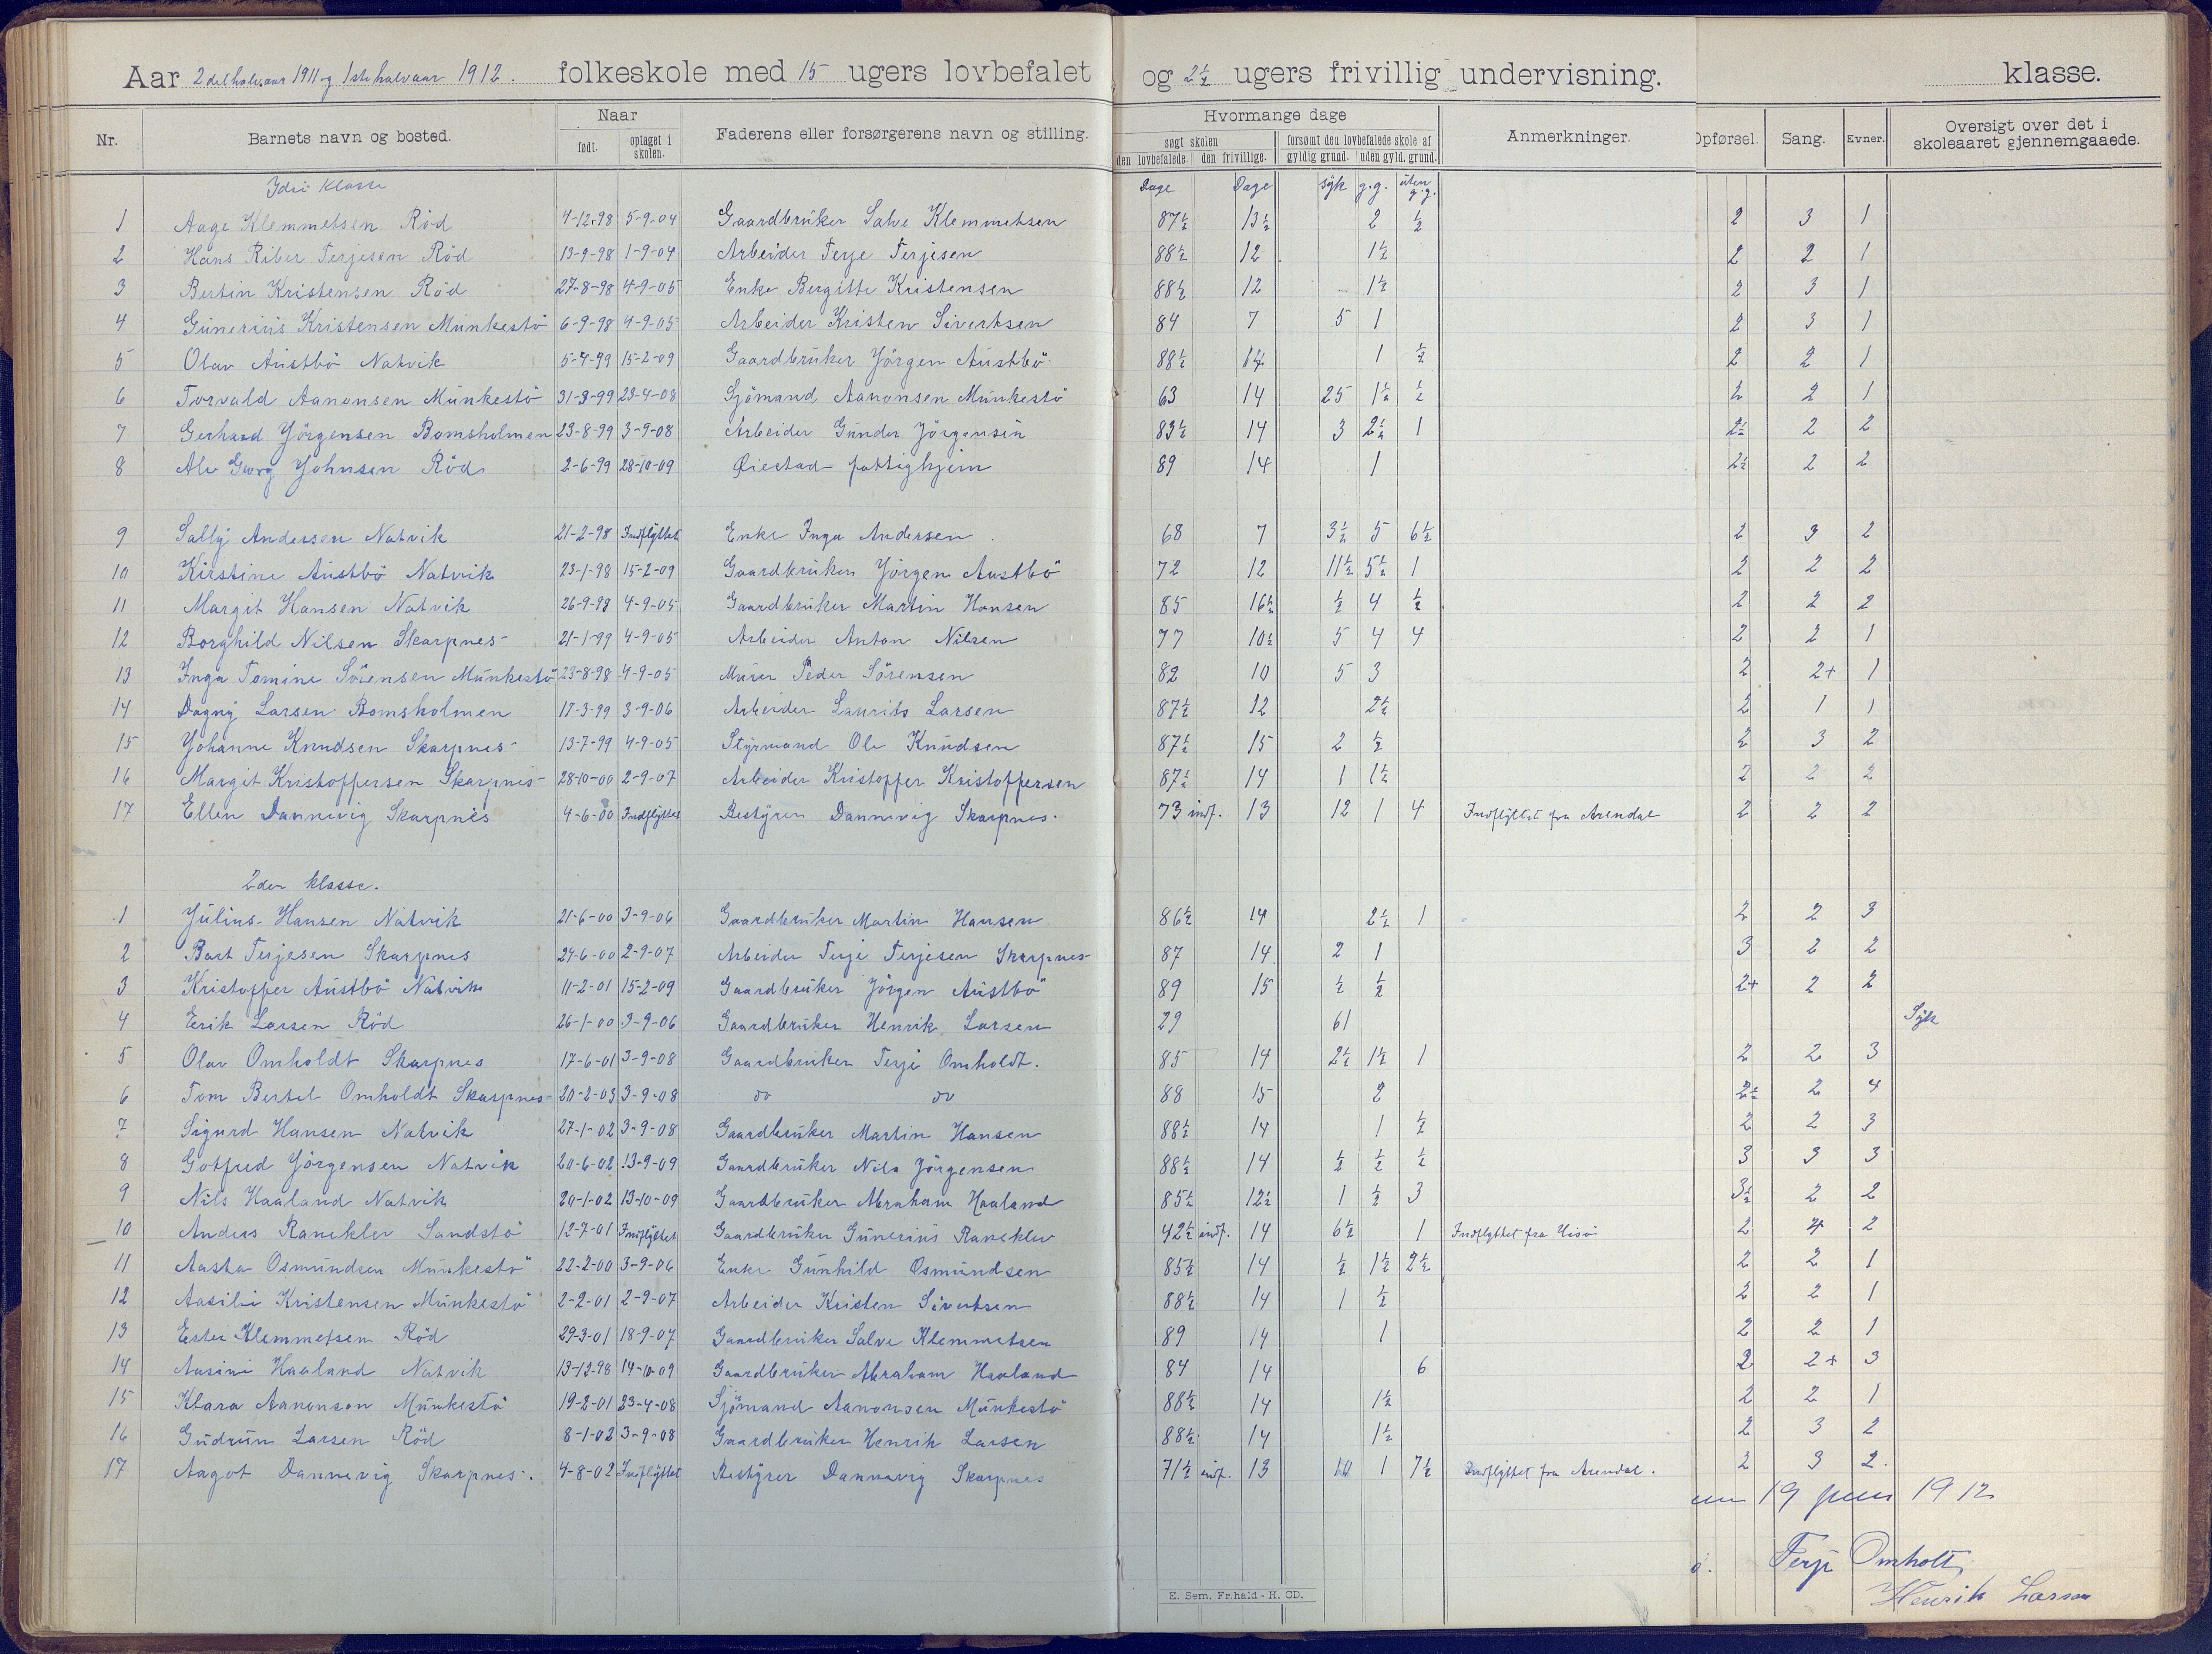 Aar 2det halvaar 1911 og 1ste halvaar 1912. folkeskole med 15 ugers lovbefalet og 2½ ugers frivillig undervisning. klasse.
Nr. Barnets navn og bosted. Naar født. optaget i skolen. Faderens eller forsørgerens navn og stilling. Hvormange dage søgt skolen den lovbefalede. den frivillige. forsømt den lovbefalede skole af gyldig grund. uden gyld. grund. Anmerkninger. Opførsel. Sang. Evner. Oversigt over det i skoleaaret gjennemgaaede.
klasse Dage Dage syk g.g. uten g.g.
1 Aage Klemmetsen Röd 4-12-98 5-9-04 Gaardbruker Salve Klemmetsen 87½ 13½ 2 ½ 2 3 1
2 Hans Riber Terjesen Röd 13-9-98 1-9-04 Arbeider Terje Terjesen 88½ 12 1½ 2 2 1
3 Bertin Kristensen Röd 27-8-98 4-9-05 Enke Bergitte Kristensen 88½ 12 1½ 2 3 1
4 Gunerius Kristensen Munkestö 6-9-98 4-9-05 Arbeider Kristen Sivertsen 84 7 5 1 2 3 1
5 Olav Austbö Natvik 5-4-99 15-2-09 Gaardbruker Jörgen Austbö 88½ 14 1 ½ 2 2 1
6 Torvald Aanonsen Munkestö 31-3-99 23-4-08 Sjömand Aanonsen Munkestö 63 14 25 1½ ½ 2 2 1
7 Gerhard Jörgensen Bomsholmen 23-8-99 3-9-08 Arbeider Gunder Jörgensen 83½ 14 3 2½ 1 2½ 2 2
8 Alv Georg Johnsen Röd 2-6-99 28-10-09 Øiestad fattighjem 89 14 1 2½ 2 2
9 Sally Andersen Natvik 21-2-98 Indflyttet Enke Inga Andersen 68 7 3½ 5 6½ 2 3 2
10 Kirstine Austbö Natvik 23-1-98 15-2-09 Gaardbruker Jörgen Austbö 72 12 11½ 5½ 1 2 2 2
11 Margit Hansen Natvik 26-9-98 4-9-05 Gaardbruker Martin Hansen 85 16½ ½ 4 ½ 2 2 2
12 Borghild Nilsen Skarpnes 21-1-99 4-9-05 Arbeider Anton Nilsen 77 10½ 5 4 4 2 2 1
13 Inga Tomine Sörensen Munkestö 23-8-98 4-9-05 Murer Peder Sörensen 82 10 5 3 2 2+ 1
14 Dagny Larsen Bomsholmen 17-3-99 3-9-06 Arbeider Laurits Larsen 87½ 12 2½ 2 1 1
15 Johanne Knudsen Skarpnes 13-7-99 4-9-05 Styrmand Ole Knudsen 87½ 15 2 ½ 2 3 2
16 Margit Kristoffersen Skarpnes 28-10-00 2-9-07 Arbeider Kristoffer Kristoffersen 87½ 14 1 1½ 2 2 2
17 Ellen Dannevig Skarpnes 4-6-00 Indflyttet Bestyrer Dannevig Skarpnes. 73 indf. 13 12 1 4 Indflyttet fra Arendal 2 2 2
2den klasse.
1 Julius Hansen Natvik 21-6-00 3-9-06 Gaardbruker Martin Hansen 86½ 14 2½ 1 2 2 3
2 Bart Terjesen Skarpnes 24-6-00 2-9-07 Arbeider Terje Terjesen Skarpnes 87 14 2 1 3 2 2
3 Kristoffer Austbö Natvik 11-2-01 15-2-09 Gaardbruker Jörgen Austbö 89 15 ½ ½ 2+ 2 2
4 Erik Larsen Röd 26-1-00 3-9-06 Gaardbruker Henrik Larsen 29 61 Syk
5 Olav Omholdt Skarpnes 17-6-01 3-9-08 Gaardbruker Terje Omholdt. 85 14 2½ 1½ 1 2 2 3
6 Tom Bertel Omholdt Skarpnes 20-2-03 3-9-08 do do 88 15 2 2½ 2 4
7 Sigurd Hansen Natvik 27-1-02 3-9-08 Gaardbruker Martin Hansen 88½ 14 1 ½ 2 2 3
8 Gotfred Jörgensen Natvik 20-6-02 13-9-09 Gaardbruker Nils Jörgensen 88½ 14 ½ ½ ½ 3 3 3
9 Nils Haaland Natvik 20-1-02 13-10-09 Gaardbruker Abraham Haaland 85½ 12½ 1 ½ 3 3½ 2 2
10 Anders Raneklev Sandstö 12-7-01 Indflyttet Gaardbruker Gunerius Raneklev 42½ indf. 14 6½ 1 Indflyttet fra Hisöi 2 4 2
11 Aasta Osmundsen Munkestö 22-2-00 3-9-06 Enke Gunhild Osmundsen 85½ 14 ½ 1½ 2½ 2 2 1
12 Aasilie Kristensen Munkestö 2-2-01 2-9-07 Arbeider Kristen Sivertsen 88½ 14 1 ½ 2 2 1
13 Ester Klemmetsen Röd 29-3-01 18-9-07 Gaardbruker Salve Klemmetsen 89 14 1 2 2 1
14 Aasine Haaland Natvik 13-12-98 14-10-09 Gaardbruker Abraham Haaland 84 14 6 2 2+ 3
15 Klara Aanonson Munkestö 19-2-01 23-4-08 Sjömand Aanonsen Munkestö 88½ 14 1½ 2 2 1
16 Gudrun Larsen Röd 8-1-02 3-9-08 Gaardbruker Henrik Larsen 88½ 14 1½ 2 3 2
17 Aagot Dannevig Skarpnes. 4-8-02 Indflyttet Bestyrer Dannevig Skarpnes 71½ indf. 13 10 1 7½ Indflyttet fra Arendal. 2 3 2.
19 juni 1912
Terje Omholt
Henrik Larsen
E. Sem. Fr.hald - H. CD.